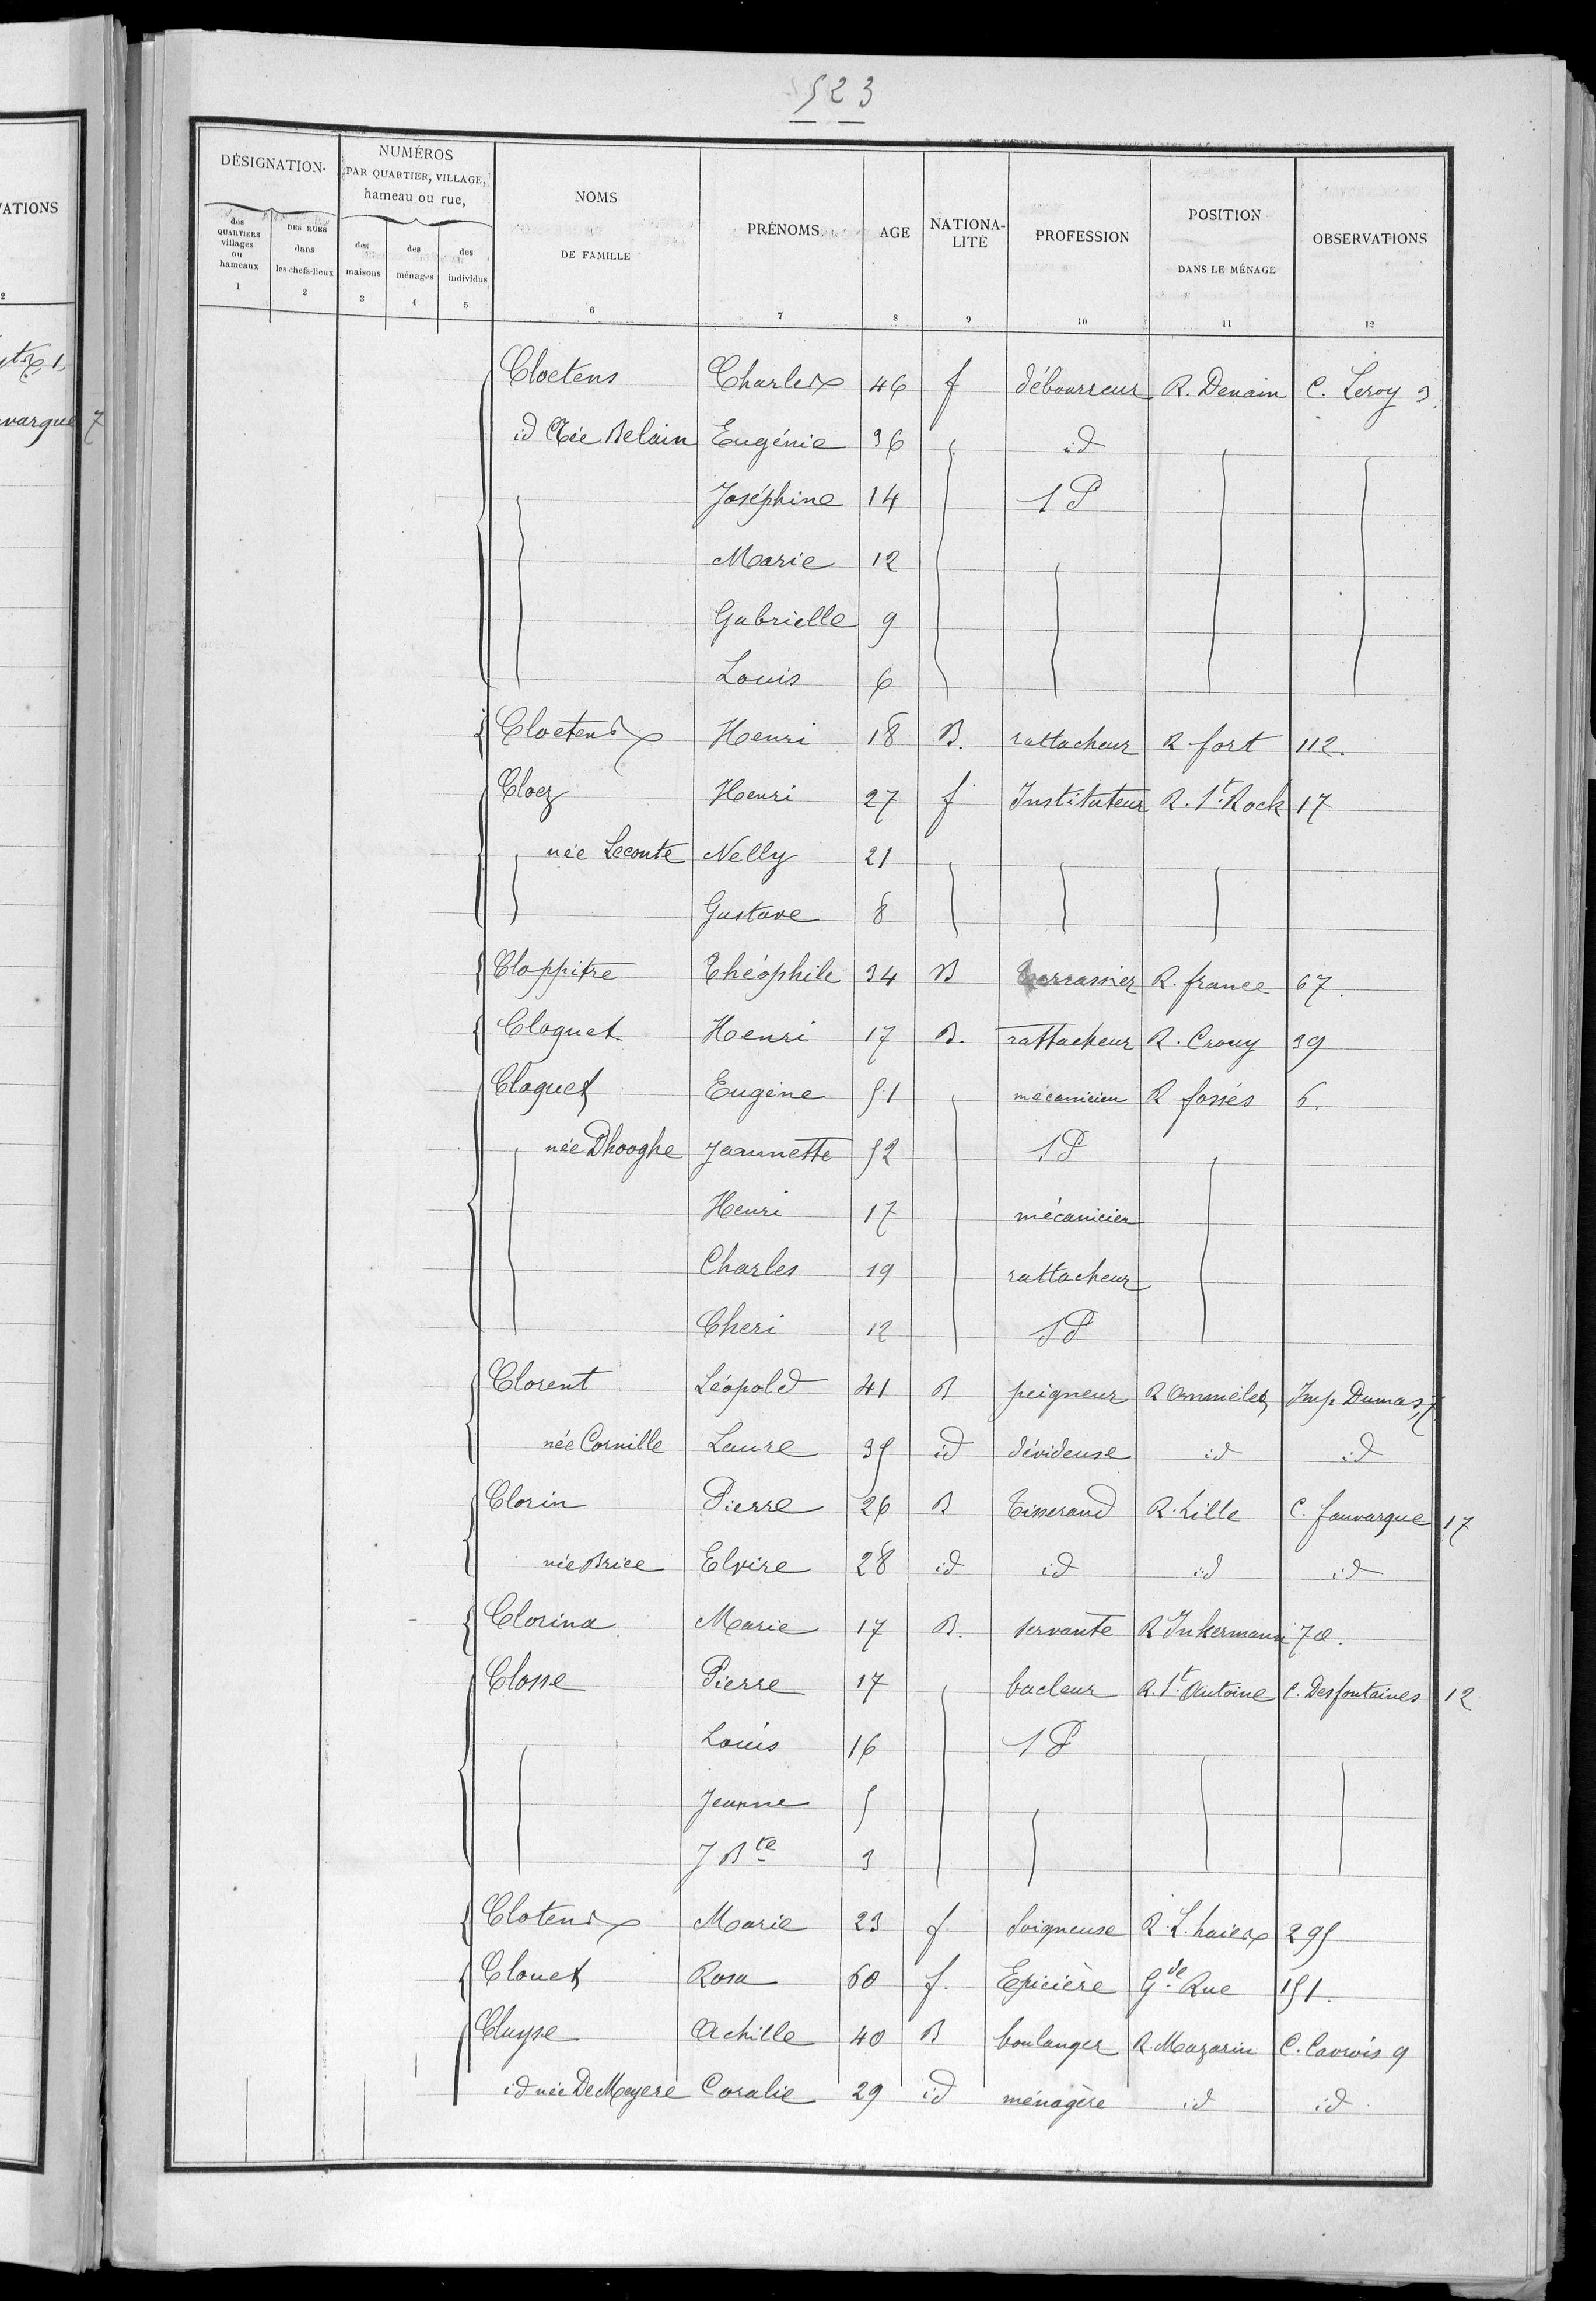 523
DÉSIGNATION.
NUMÉROS PAR QUARTIER, VILLAGE, hameau ou rue,
NOMS DE FAMILLE
PRÉNOMS
AGE
NATIONA-LITÉ
PROFESSION
POSITION DANS LE MÉNAGE
OBSERVATIONS
des QUARTIERS villages ou hameaux
DES RUES dans les chefs-lieux
des maisons
des ménages
des individus
1 2 3 4 5 6 7 8 9 10 11 12
Cloetens Charles 46 f débourreur R. Denain C. Leroy 3.
id Née Belain Eugénie 36 id
Joséphine 14 SP
Marie 12
Gabrielle 9
Louis 6
Cloetens Henri 18 B. rattacheur R fort 112.
Cloez Henri 27 f Instituteur R. St. Rock 17
née Leconte Nelly 21
Gustave 8
Cloppitre Théophile 34 B terrassier R. france 67.
Cloquet Henri 17 B. rattacheur R. Crouy 39
Cloquet Eugène 51 mécanicien R fossés 6.
née Dhooghe Jeannette 52 SP
Henri 17 mécanicien
Charles 19 rattacheur
Cheri 12 SP
Clorent Léopold 41 B peigneur R Ommelet Imp. Dumas, 7
née Cornille Laure 35 id dévideuse id id
Clorin Pierre 26 B Tisserand R. Lille C. fauvarque 17
née Brice Elvire 28 id id id id
Clorina Marie 17 B. servante R Inkermann 70.
Closse Pierre 17 bacleur R. St. Antoine C. Desfontaines 12
Louis 16 SP
Jeanne 5
J Bte 3
Clotens Marie 23 f Soigneuse R. L. haies 295
Clouet Rosa 60 f. Epicière Gde Rue 151.
Cluyse Achille 40 B boulanger R. Mazarin C. Cavrois 9
id née De Meyere Coralie 29 id ménagère id id
ATIONS
2
varque 7